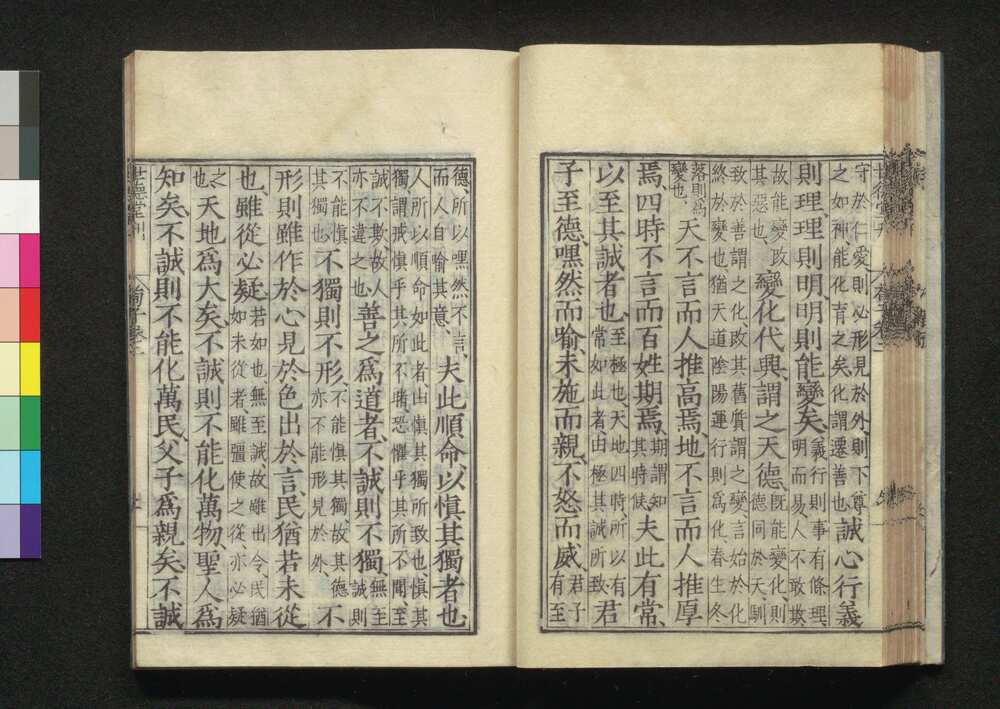 守於仁愛則必形見於外則下尊
之如神能化育之矣化謂遷善也誠心行義
則理理則明明則能變矣義行則事有條理
明而易人不敢欺
故能變改
其惡也變化代興謂之天德既能變化則
德同於天馴
致於善謂之化改其舊質謂之變言始於化
終於變也猶天道陰陽運行則爲化春生冬
落則爲
變也天不言而人推高焉地不言而人推厚
焉四時不言而百姓期焉期謂知
其時候夫此有常
以至其誠者也至極也天地四時所以有
常如此者由極其誠所致君
子至德嘿然而喻未施而親不怒而威君子
有至
德所以嘿然不言
而人自喻其意夫此順命以愼其獨者也
人所以順命如此者由愼其獨所致也愼其
獨謂戒愼乎其所不睹恐懼乎其所不聞至
誠不欺故人
亦不違之也善之爲道者不誠則不獨無至
誠則
不能愼
其獨也不獨則不形不能愼其獨故其德
亦不能形見於外不
形則雖作於心見於色出於言民猶若未從
也雖從必疑若如也無至誠故雖出令民猶
如未從者雖彊使之從亦必疑
之
也天地爲大矣不誠則不能化萬物聖人爲
知矣不誠則不能化萬民父子爲親矣不誠
世德堂刊